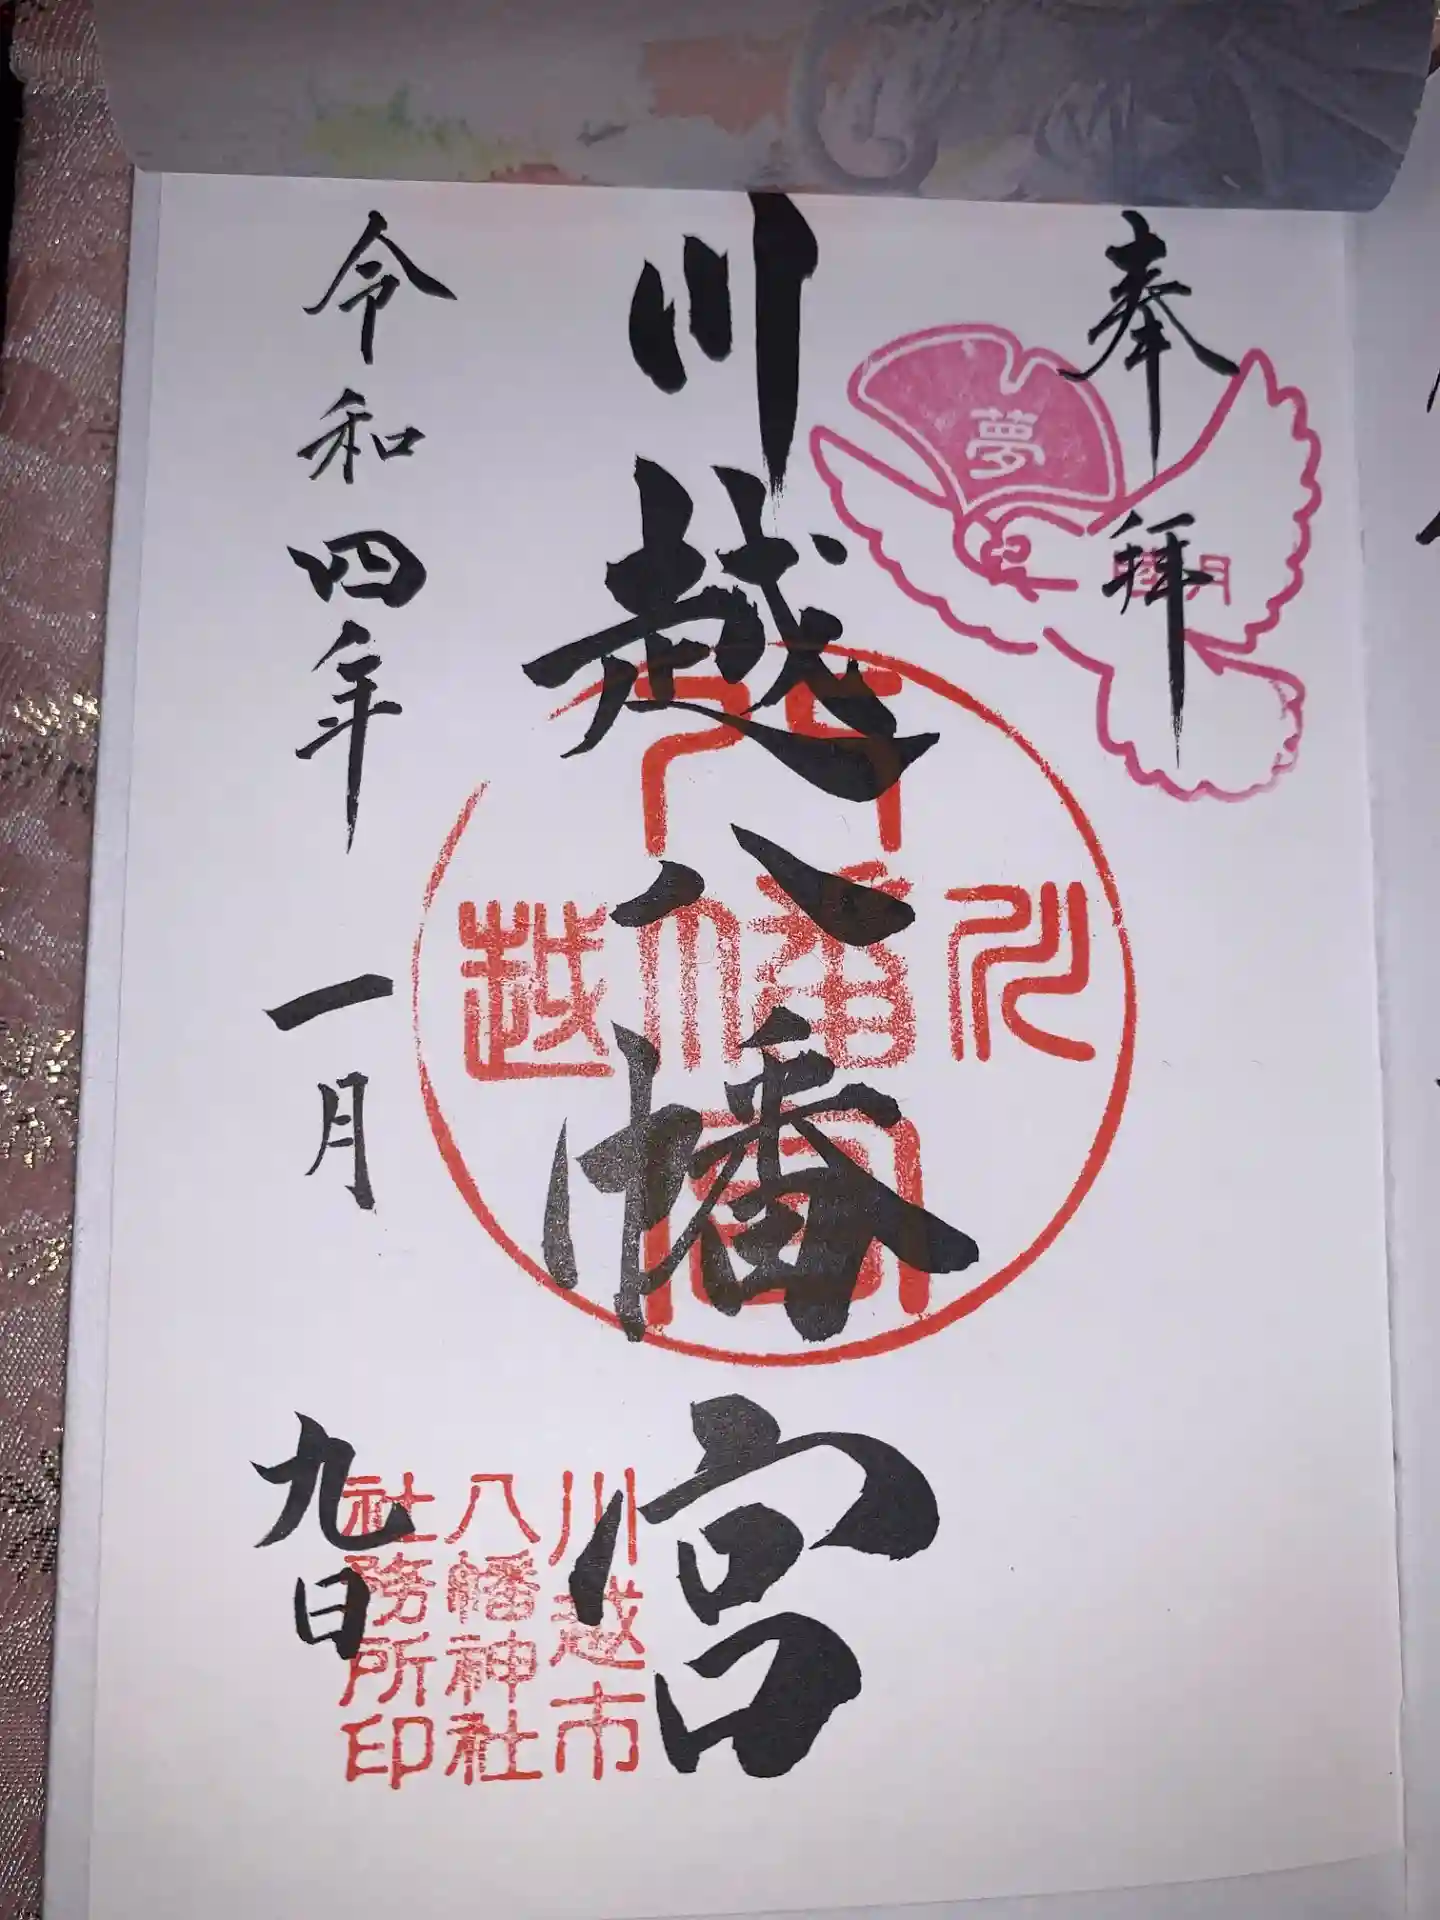 奉拝
夢
月
川越八幡宮
八幡宮
川越
川越市
八幡神社
社務所印
令和四年一月九日